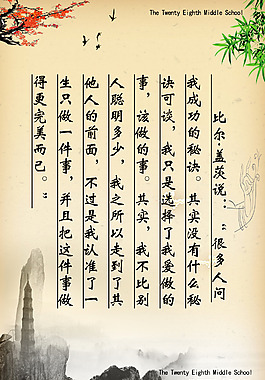 The Twenty Eighth Middle School
比尔·盖茨说：“很多人问
我成功的秘诀。其实没有什么秘
诀可谈，我只是选择了我爱做的
事，该做的事。其实，我不比别
人聪明多少，我之所以走到了其
他人的前面，不过是我认准了一
生只做一件事，并且把这件事做
得更完美而已。”
The Twenty Eighth Middle School